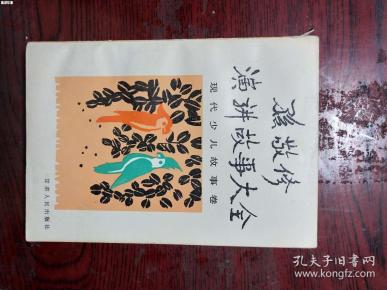 孙敬修
演讲故事大全
现代少儿故事卷
甘肃人民出版社
孔夫子旧书网